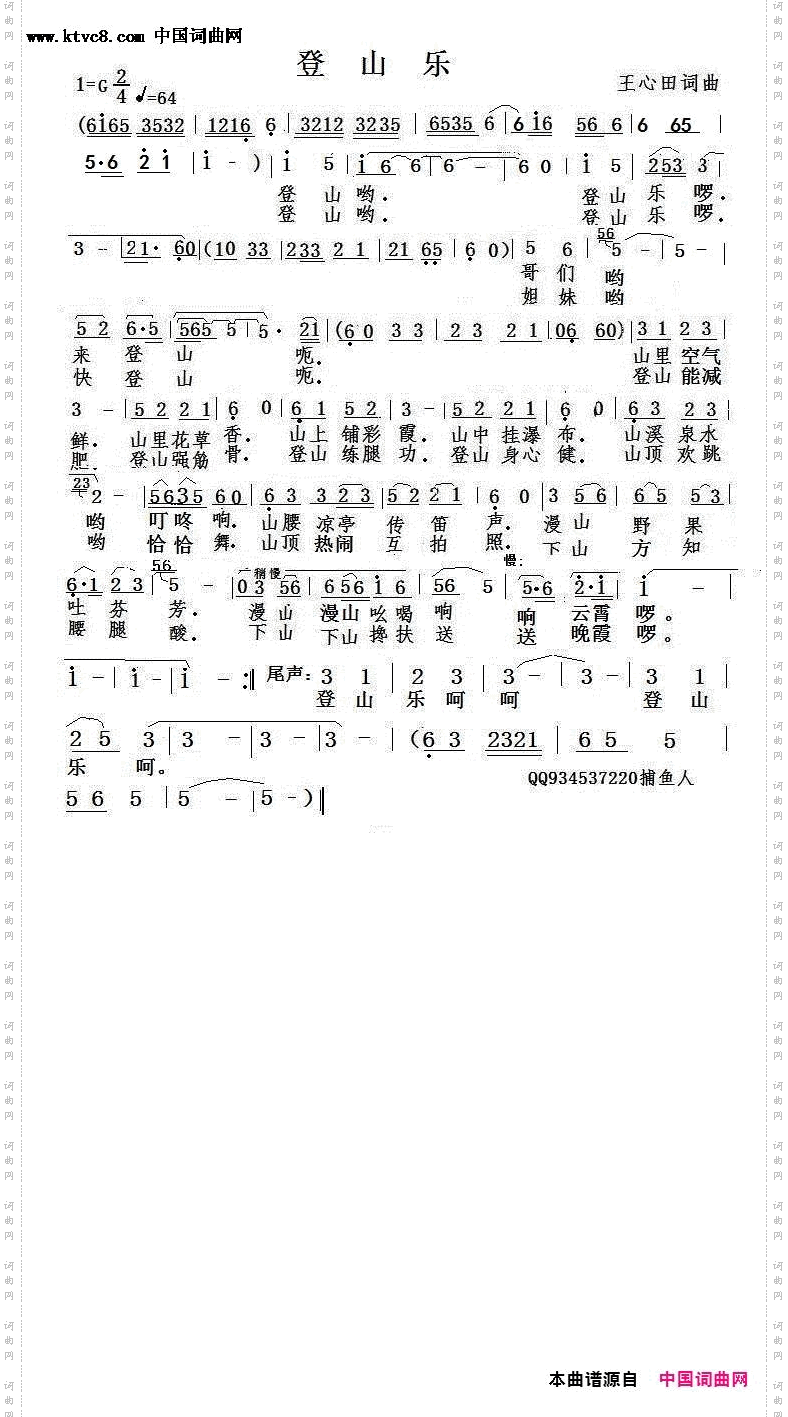 www.ktvc8.com 中国词曲网
登 山 乐
1=G 2/4 ♩=64 王心田词曲
(6165 3532 | 1216 6 | 3212 3235 | 6535 6 | 6 16 56 6 | 6 65 |
5·6 2 1 | 1 - ) | 1 5 | 1 6 6 | 6 - | 6 0 | 1 5 | 253 3 |
登 山 哟. 登 山 乐 啰.
登 山 哟. 登 山 乐 啰.
3 - | 21· 60 | (10 33 | 233 2 1 | 21 65 | 6 0) | 5 6 | 56 5 - | 5 - |
哥 们 哟
姐 妹 哟
5 2 6·5 | 565 5 | 5· 21 | (60 33 | 23 21 | 06 60) | 31 23 |
来 登 山 呃. 山里 空气
快 登 山 呃. 登山 能减
3 - | 52 21 | 6 0 | 61 52 | 3 - | 52 21 | 6 0 | 63 23 |
鲜. 山里花草 香. 山上 铺彩 霞. 山中 挂瀑 布. 山溪 泉水
肥. 登山强筋 骨. 登山 练腿 功. 登山 身心 健. 山顶 欢跳
23 2 - | 5635 60 | 63 323 | 52 21 | 6 0 | 3 56 | 65 53 |
哟 叮咚 响. 山腰 凉亭 传 笛 声. 漫山 野 果
哟 恰恰 舞. 山顶 热闹 互 拍 照. 下山 方 知
稍慢 慢:
6·1 23 | 56 5 - | 03 56 | 656 16 | 56 5 | 5·6 2·1 | 1 - |
吐 芬 芳. 漫山 漫山 吆喝 响 响 云霄 啰。
腰 腿 酸. 下山 下山 搀扶 送 送 晚霞 啰。
1 - | 1 - | 1 - :‖ 尾声: 3 1 | 2 3 | 3 - | 3 - | 3 1 |
登 山 乐 呵 呵 登 山
25 3 | 3 - | 3 - | 3 - | (63 2321 | 65 5 |
乐 呵。
QQ934537220捕鱼人
56 5 | 5 - | 5 - )‖
本曲谱源自 中国词曲网
词曲网